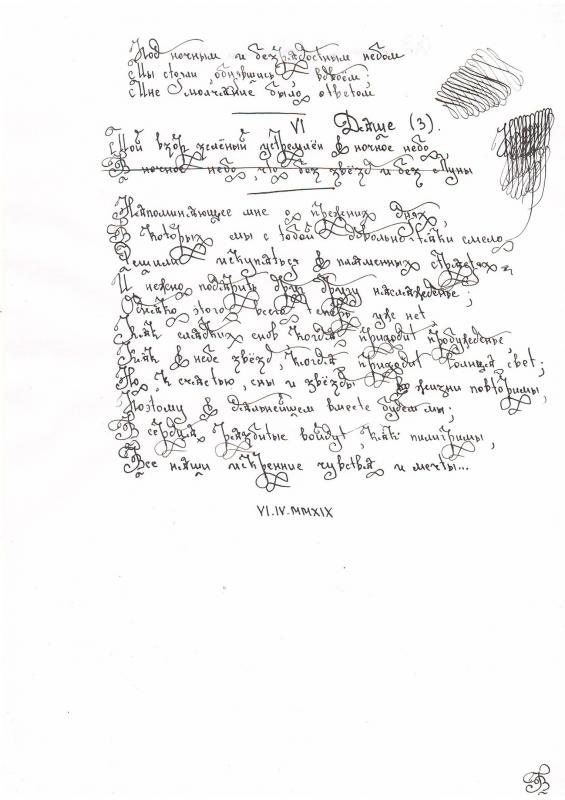 Под ночным и безрадостным небом
Мы стояли, обнявшись, вдвоём;
Мне молчание было ответом
VI Даше (3).
Мой взор зелёный устремлён в ночное небо,
В ночное небо, что без звёзд и без луны
Напоминающее мне о прежних днях,
В которых мы с тобой довольно-таки смело
Решили искупаться в пламенных страстях
И нежно подарить друг другу наслажденье;
Однако этого всего теперь уже нет,
Как сладких снов, когда приходит пробужденье,
Как в небе звёзд, когда приходит солнца свет;
Но, к счастью, сны и звёзды во жизни повторимы,
Поэтому в дальнейшем вместе будем мы;
В сердца разбитые войдут, как пилигримы,
Все наши искренние чувства и мечты...
VI.IV.MMXIX